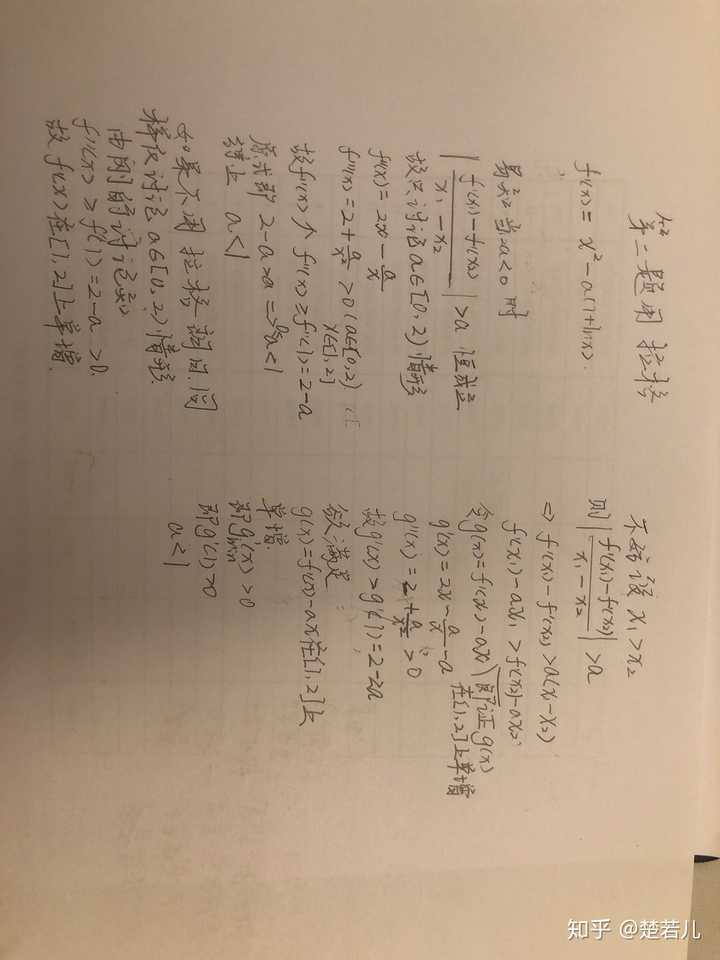 第二题用拉格
f'(x) = x² - a(1+lnx).
易知当a<0时
|f'(x₁)-f'(x₂) / x₁-x₂| >a 恒成立
故只讨论a∈[0,2)情形
f''(x) = 2x - a/x
f'''(x) = 2 + a/x² >0 (a∈[0,2)
x∈[1,2]
故f''(x)↑ f''(x)≥f''(1)=2-a
原式即 2-a>a ⇒ a<1
综上 a<1
如果不用拉格朗日,同
样仅讨论a∈[0,2)情形
由刚的讨论知
f''(x) ≥ f''(1) = 2-a >0.
故f'(x)在[1,2]上单增.
不妨设 x₁>x₂
则 |f'(x₁)-f'(x₂) / x₁-x₂| >a
⇒ f'(x₁)-f'(x₂) >a(x₁-x₂)
f'(x₁)-ax₁ > f'(x₂)-ax₂
令g(x)=f'(x)-ax 即证g(x)
在[1,2]上单增
g'(x) = 2x - a/x - a
g''(x) = 2 + a/x² >0
故g'(x) > g'(1) = 2-2a
欲满足
g(x)=f'(x)-ax在[1,2]上
单增.
即g'(x)min >0
即g'(1) >0
a<1
知乎 @楚若儿